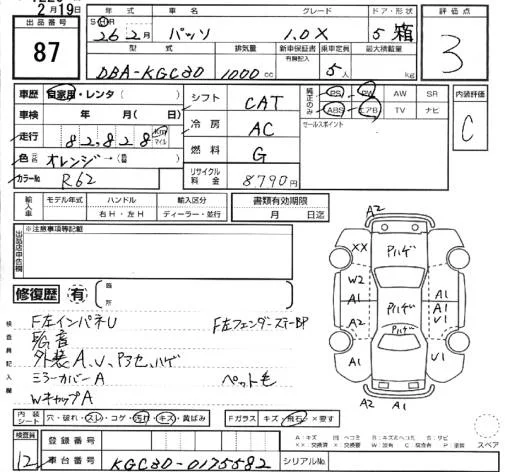 2月19日
出品番号 87
年式 車名 グレード ドア・形状
S H 26年2月 パッソ 1.0X 5 箱
型式 排気量 新車保証書 乗車定員 最大積載量
有無記入
DBA-KGC30 1000cc 5人 kg
評価点
3
車歴 自家用・レンタ( )
車検 年 月( 日)
走行 82,828 Km マイル
色 オレンジ→( )
カラーNo R62
シフト CAT
冷房 AC
燃料 G
リサイクル料金 8,790円
純正のみ PS PW AW SR
ABS エアB TV ナビ
セールスポイント
内装評価
C
輸入車 モデル年式 ハンドル 輸入区分
年 右H・左H ディーラー・並行
書類有効期限
月 日迄
出品店申告欄
※注意事項等記載
修復歴 有 箇所
検査員記入欄
F左インパネU F左フェンダーステーBP
外装A、U、Pヨセ、ハゲ
ミラーカバーA ペット毛
WキャップA
A2
XX Pハゲ
W2
A1 A1
Pハゲ A1
A2 U1
Pハゲ
A1 U1
A2 A1
内装シート 穴・破れ・スレ・コゲ・汚れ・キズ・黄ばみ Fガラス キズ・飛石・×要す
A:キズ U:凹ヘコミ B:キズとヘコミ S:サビ
スペア
検査員 12
登録番号
車台番号 KGC30-0175582 シリアルNo.